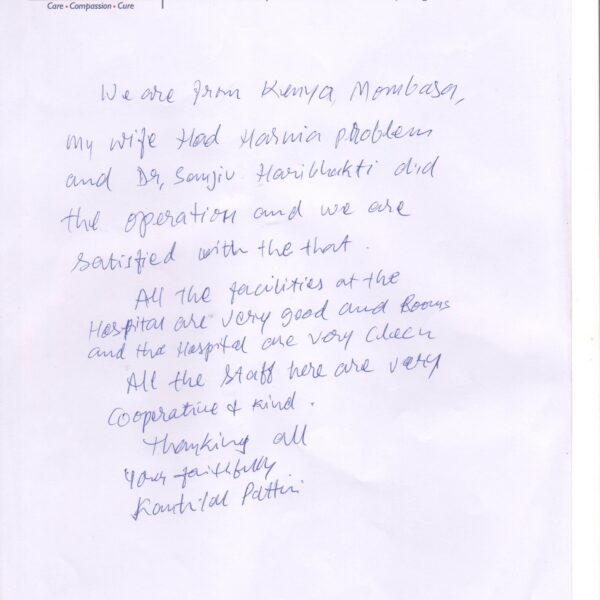 Care • Compassion • Cure
We are from Kenya, Mombasa,
my wife Had Harnia problem
and Dr, Sanjiv Haribhakti did
the operation and we are
satisfied with the that.
All the facilities at the
Hospital are very good and Rooms
and the Hospital are very Cleen
All the Staff here are very
Cooperative & Kind.
Thanking all
Yours faithfully
Kantilal Pattni